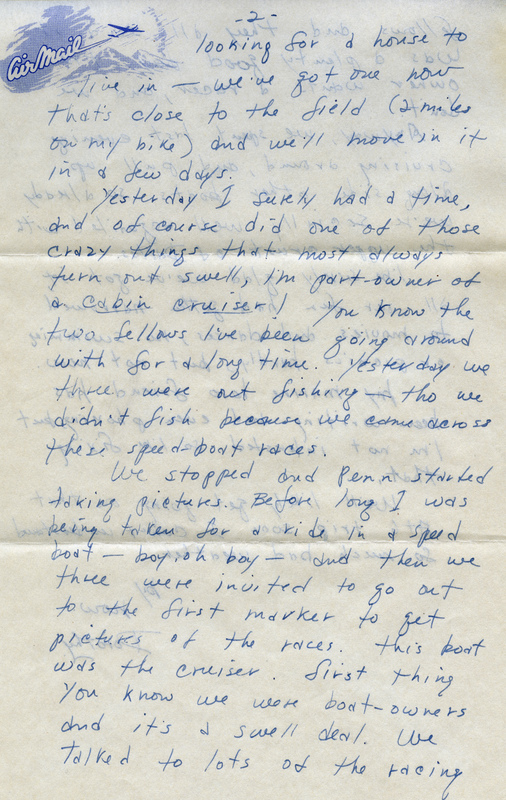 -2-
Air Mail
looking for a house to
live in — we've got one now
that's close to the field (2 miles
on my bike) and we'll move in it
in a few days.
Yesterday I surely had a time,
and of course did one of those
crazy things that most always
turn out swell, i'm part-owner of
a cabin cruiser! You know the
two fellows I've been going around
with for a long time. Yesterday we
three were out fishing — tho we
didn't fish because we came across
these speed-boat races.
We stopped and Penn started
taking pictures. Before long I was
being taken for a ride in a speed
boat — boy, oh boy — and then we
three were invited to go out
to the first marker to get
pictures of the races. this boat
was the cruiser. First thing
you know we were boat-owners
and it's a swell deal. We
talked to lots of the racing